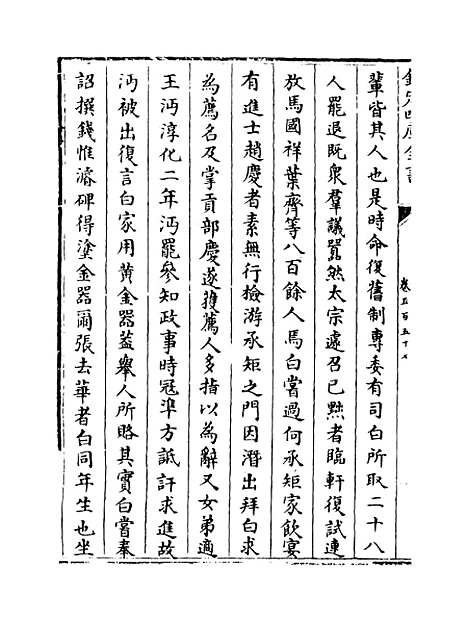 欽定四庫全書
卷五百五十七
輩皆其人也是時命復舊制專委有司白所取二十八
人罷退既衆羣議囂然太宗遽召已黜者臨軒復試連
放馬國祥葉齊等八百餘人焉白嘗過何承矩家飲宴
有進士趙慶者素無行檢游承矩之門因潛出拜白求
為薦名及掌貢部慶遂獲薦人多指以為辭又女弟適
王沔淳化二年沔罷參知政事時寇準方詆訐求進故
沔被出復言白家用黄金器蓋舉人所賂其實白嘗奉
詔撰錢惟濬碑得塗金器爾張去華者白同年生也坐